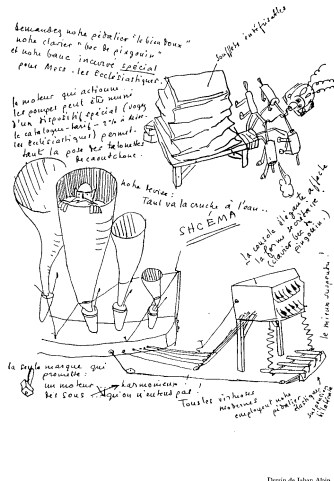 Demandez notre pédalier "le bien doux"
notre clavier "bec de pingouin"
et notre banc incurvé spécial
pour Mess. les Ecclésiastiques.
Soufflets intéfisables
le moteur qui actionne
les pompes peut être muni
d'un dispositif spécial (voyez
le catalogue-tarif
les Ecclésiastiques) permet-
tant la pose des talonettes
de caoutchouc.
notre devise:
Tant va la cruche à l'eau..
SHCEMA
la console élégante affecte
la forme
(clavier bec de
pingouin.)
la seule marque qui
promette:
un moteur harmonieux
des sons qu'on n'entend pas!
Tous les virtuoses
modernes
employent notre
pédalier élastique
suspension
le mieux suspendu!
Dessin de Jehan Alain